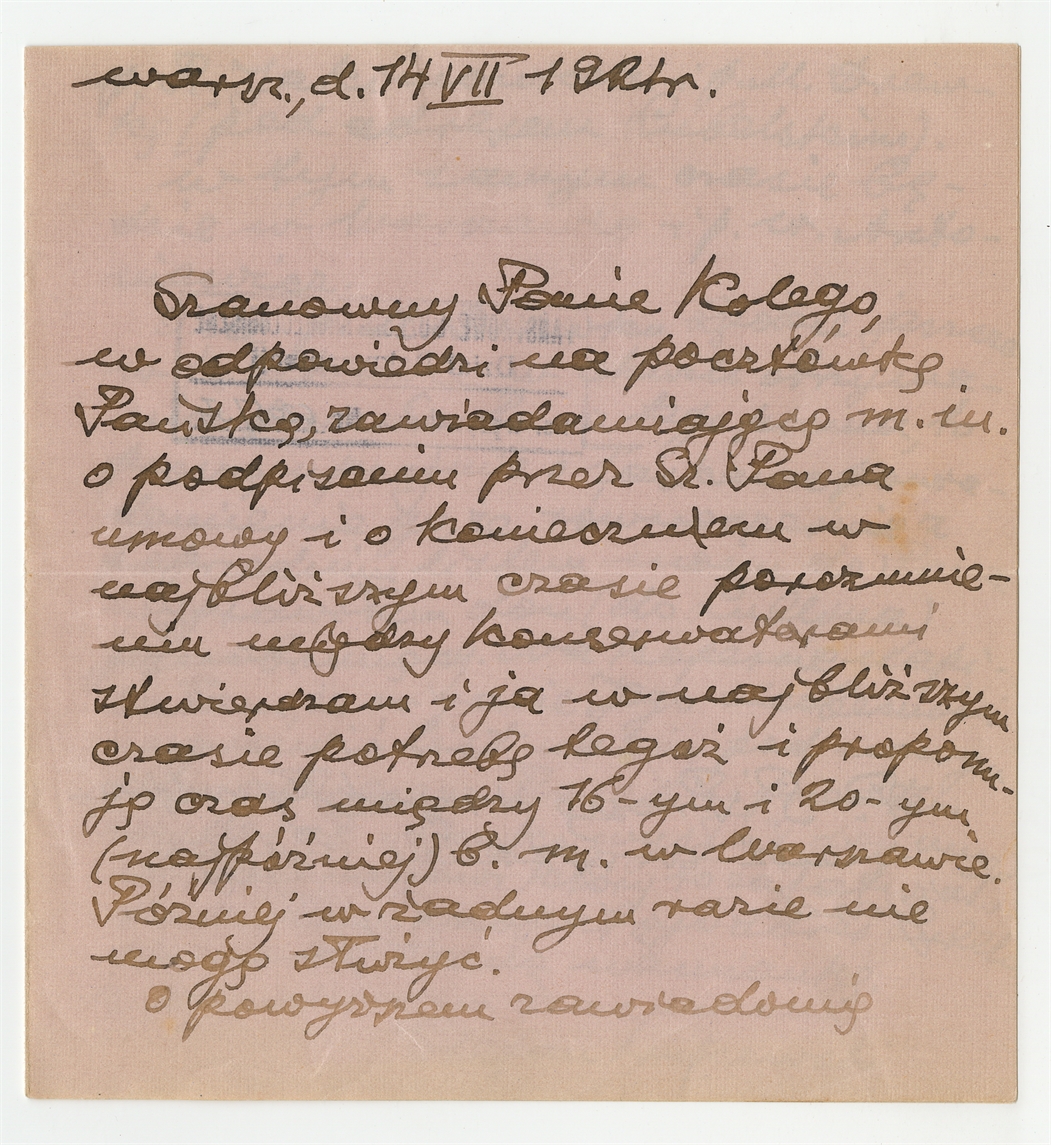 Warsz., d. 14 VII 192 r.
Szanowny Panie Kolego,
w odpowiedzi na pocztówkę
Pańską, zawiadamiającą m. in.
o podpisaniu przez Sz. Pana
umowy i o koniecznem w
najbliższym czasie porozumie-
niu między konserwatorami
stwierdzam i ja w najbliższym
czasie potrzebę tegoż i proponu-
ję czas między 16-ym i 20-ym
(najpóźniej) b. m. w Warszawie.
Później w żadnym razie nie
mogę służyć.
O powyższem zawiadomię